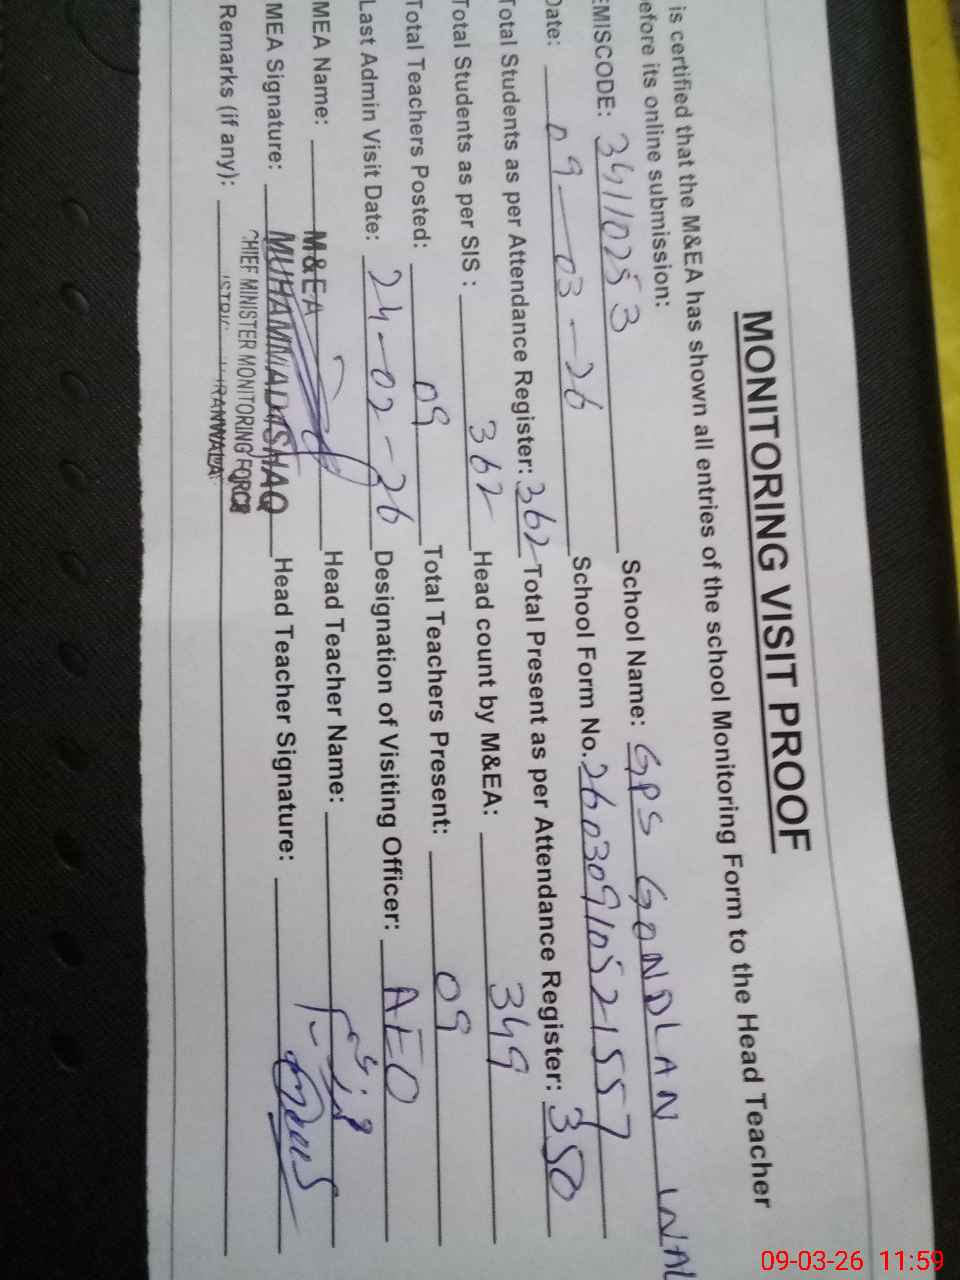 MONITORING VISIT PROOF
is certified that the M&EA has shown all entries of the school Monitoring Form to the Head Teacher
efore its online submission:
EMISCODE: 34110253 School Name: GPS GONDLAN WAL
Date: 09-03-26 School Form No. 26030910521557
Total Students as per Attendance Register: 362 Total Present as per Attendance Register: 350
Total Students as per SIS : 362 Head count by M&EA: 349
Total Teachers Posted: 09 Total Teachers Present: 09
Last Admin Visit Date: 24-02-26 Designation of Visiting Officer: AEO
MEA Name: M&EA Head Teacher Name:
MEA Signature: MUHAMMAD ISHAQ Head Teacher Signature:
CHIEF MINISTER MONITORING FORCE
Remarks (if any):
09-03-26 11:59